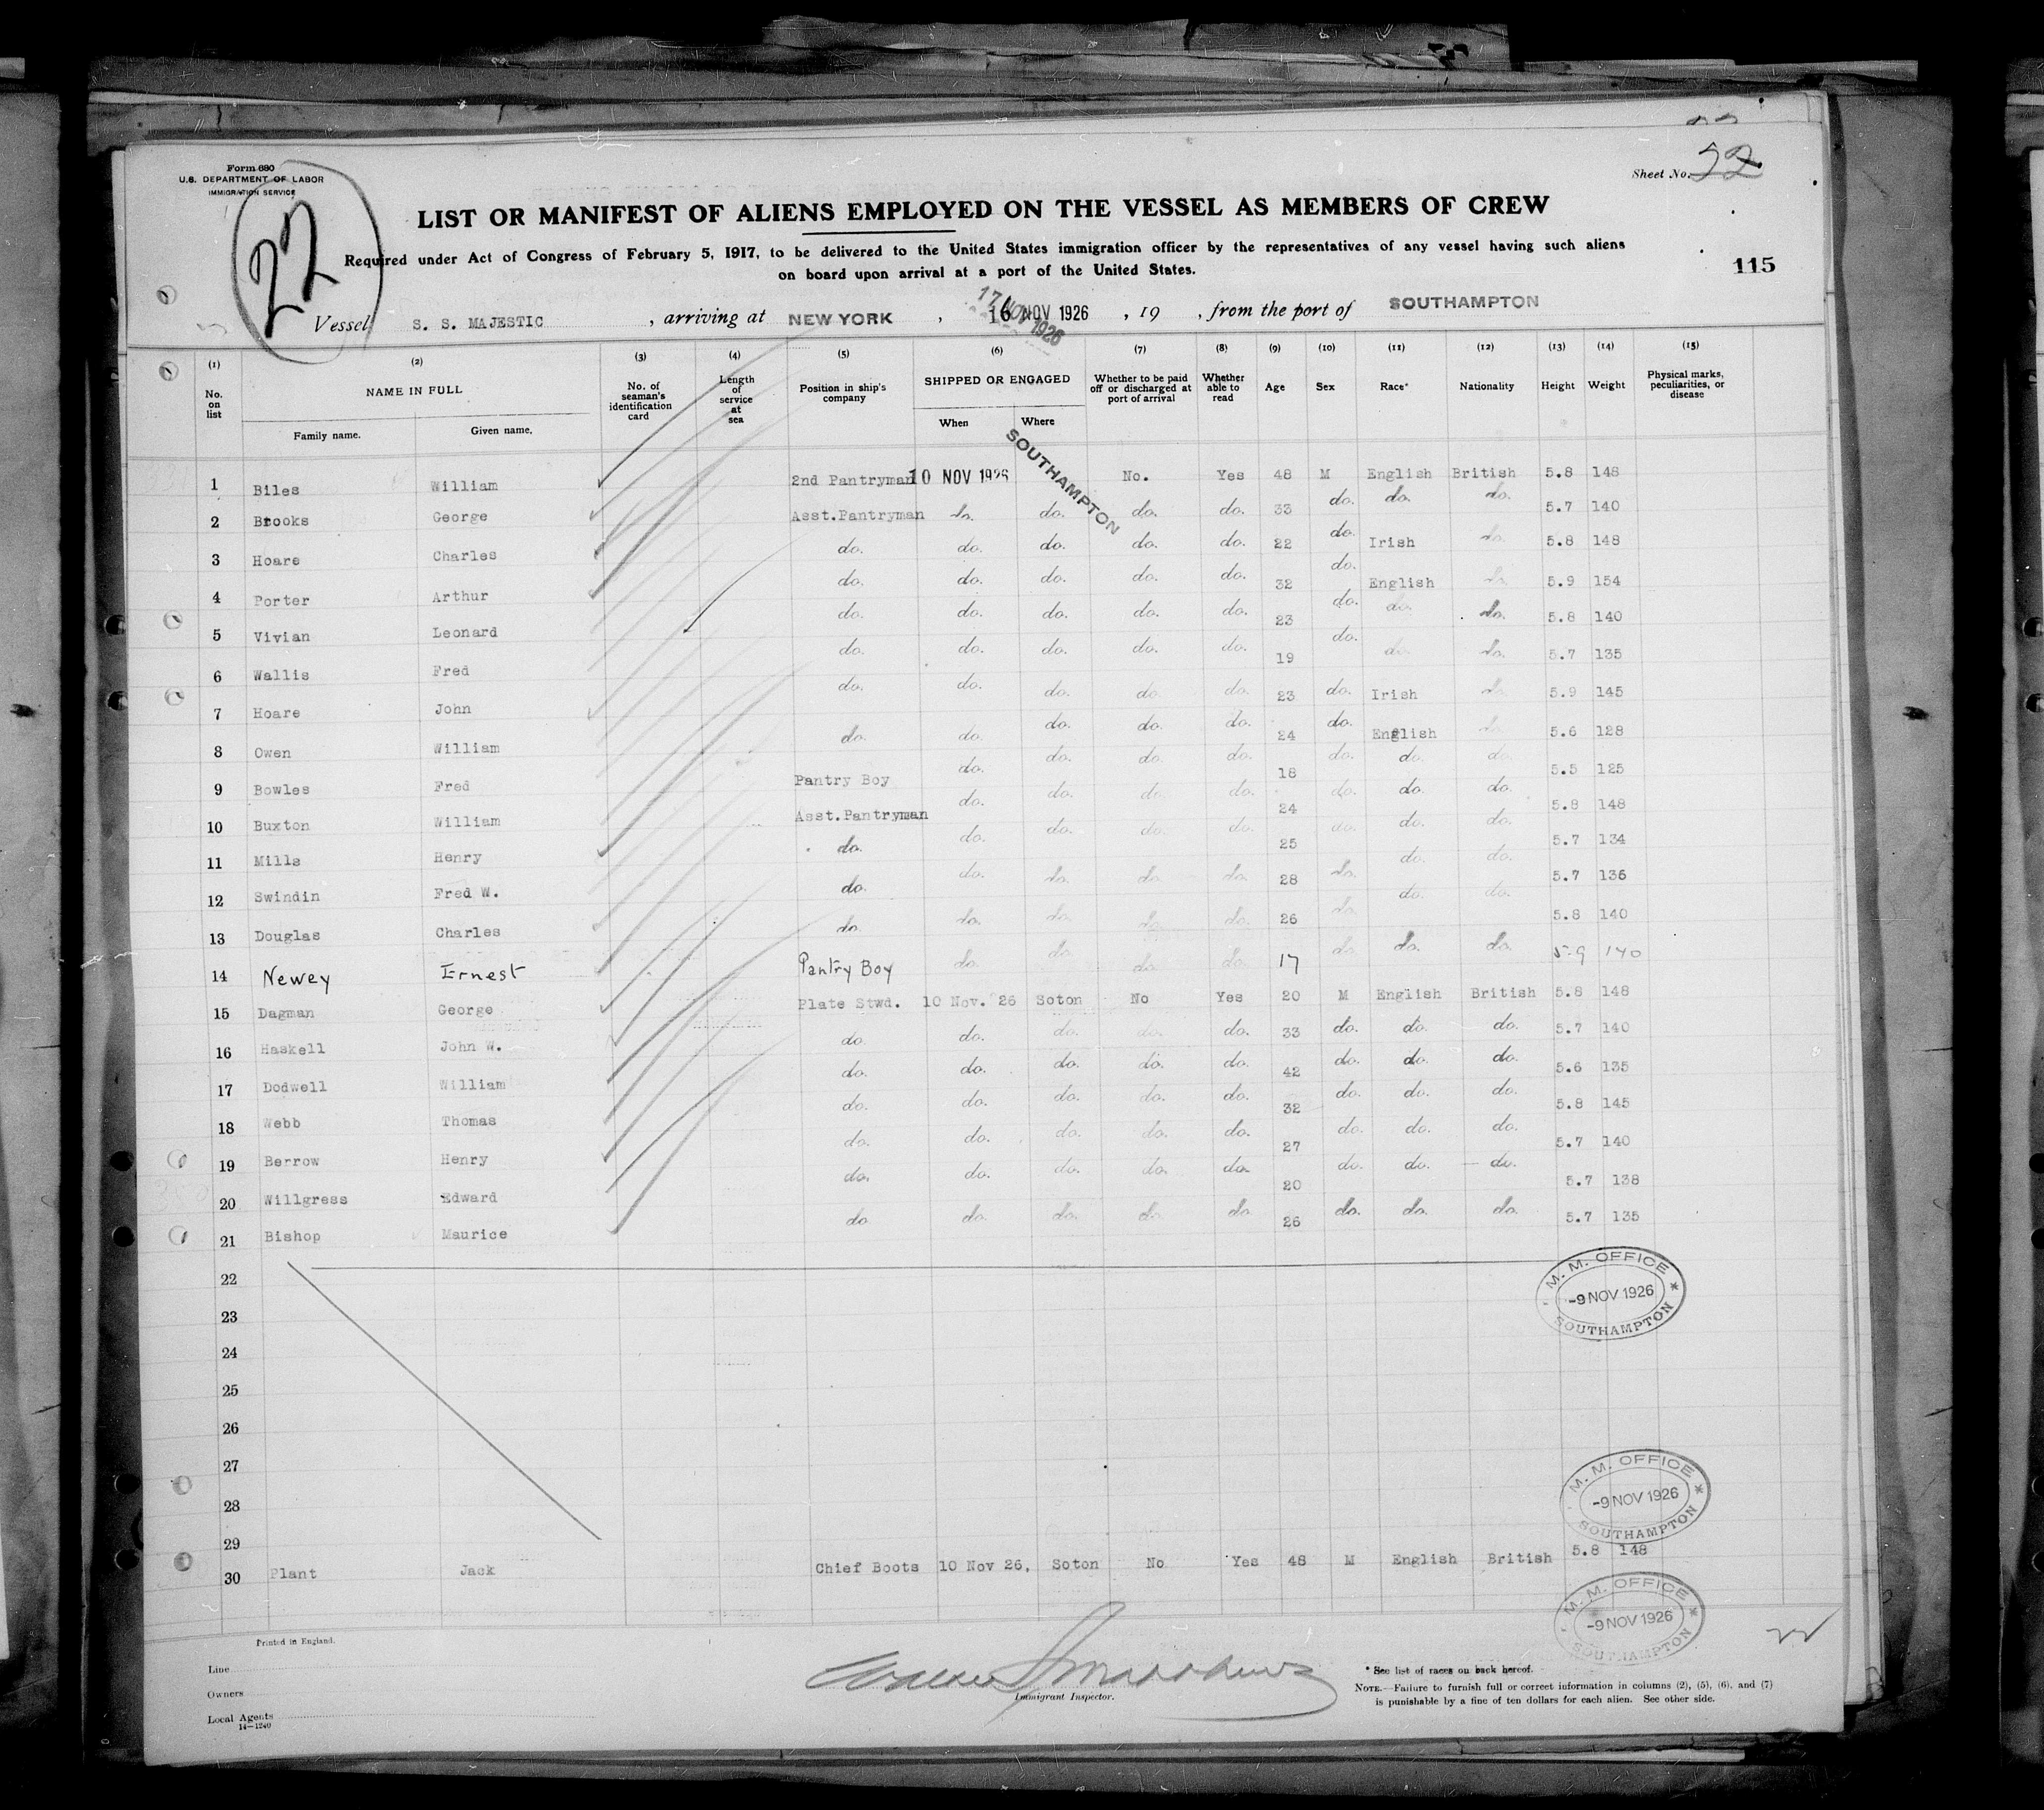 Form 680
U.S. DEPARTMENT OF LABOR
IMMIGRATION SERVICE
22
Sheet No. 22
LIST OR MANIFEST OF ALIENS EMPLOYED ON THE VESSEL AS MEMBERS OF CREW
Required under Act of Congress of February 5, 1917, to be delivered to the United States immigration officer by the representatives of any vessel having such aliens
on board upon arrival at a port of the United States.
115
Vessel S. S. MAJESTIC , arriving at NEW YORK , 16 NOV 1926 , 19 , from the port of SOUTHAMPTON
17 NOV 1926
(1) (2) (3) (4) (5) (6) (7) (8) (9) (10) (11) (12) (13) (14) (15)
No. on list NAME IN FULL Family name. Given name. No. of seaman's identification card Length of service at sea Position in ship's company SHIPPED OR ENGAGED When Where Whether to be paid off or discharged at port of arrival Whether able to read Age Sex Race* Nationality Height Weight Physical marks, peculiarities, or disease
SOUTHAMPTON
1 Biles William 2nd Pantryman 10 NOV 1926 No. Yes 48 M English British 5.8 148
2 Brooks George Asst.Pantryman do. do. do. do. 33 do. do. do. 5.7 140
3 Hoare Charles do. do. do. do. do. 22 do. Irish do. 5.8 148
4 Porter Arthur do. do. do. do. do. 32 do. English do. 5.9 154
5 Vivian Leonard do. do. do. do. do. 23 do. do. do. 5.8 140
6 Wallis Fred do. do. do. do. do. 19 do. do. do. 5.7 135
7 Hoare John do. do. do. do. do. 23 do. Irish do. 5.9 145
8 Owen William do. do. do. do. do. 24 do. English do. 5.6 128
9 Bowles Fred Pantry Boy do. do. do. do. 18 do. do. do. 5.5 125
10 Buxton William Asst.Pantryman do. do. do. do. 24 do. do. do. 5.8 148
11 Mills Henry do. do. do. do. do. 25 do. do. do. 5.7 134
12 Swindin Fred W. do. do. do. do. do. 28 do. do. do. 5.7 136
13 Douglas Charles do do. do. do. do. 26 do. do. do. 5.8 140
14 Newey Ernest Pantry Boy do. do. do. do. 17 do. do. do. 5-9 140
15 Dagman George Plate Stwd. 10 Nov. 26 Soton No Yes 20 M English British 5.8 148
16 Haskell John W. do. do. do. do. do. 33 do. do. do. 5.7 140
17 Dodwell William do. do. do. do. do. 42 do. do. do. 5.6 135
18 Webb Thomas do. do. do. do. do. 32 do. do. do. 5.8 145
19 Berrow Henry do. do. do. do. do. 27 do. do. do. 5.7 140
20 Willgress Edward do. do. do. do. do. 20 do. do. do. 5.7 138
21 Bishop Maurice do do. do. do. do. 26 do. do. do. 5.7 135
22
23
24
25
26
27
28
29
30 Plant Jack Chief Boots 10 Nov 26, Soton No Yes 48 M English British 5.8 148
M. M. OFFICE
-9 NOV 1926
SOUTHAMPTON
M. M. OFFICE
-9 NOV 1926
SOUTHAMPTON
M. M. OFFICE
-9 NOV 1926
SOUTHAMPTON
Printed in England.
Line
Owners
Local Agents
14-1240
Immigrant Inspector.
* See list of races on back hereof.
NOTE.—Failure to furnish full or correct information in columns (2), (5), (6), and (7)
is punishable by a fine of ten dollars for each alien. See other side.